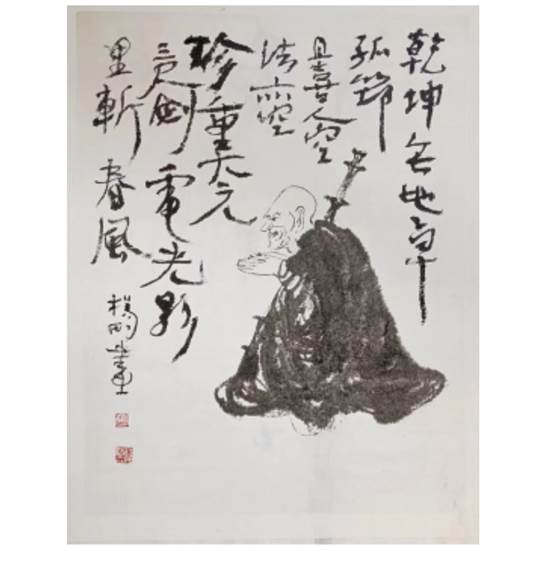 乾坤无地卓
孤筇
且喜人空
法亦空
珍重大元
三尺劍電光影
里斬春風
明畫